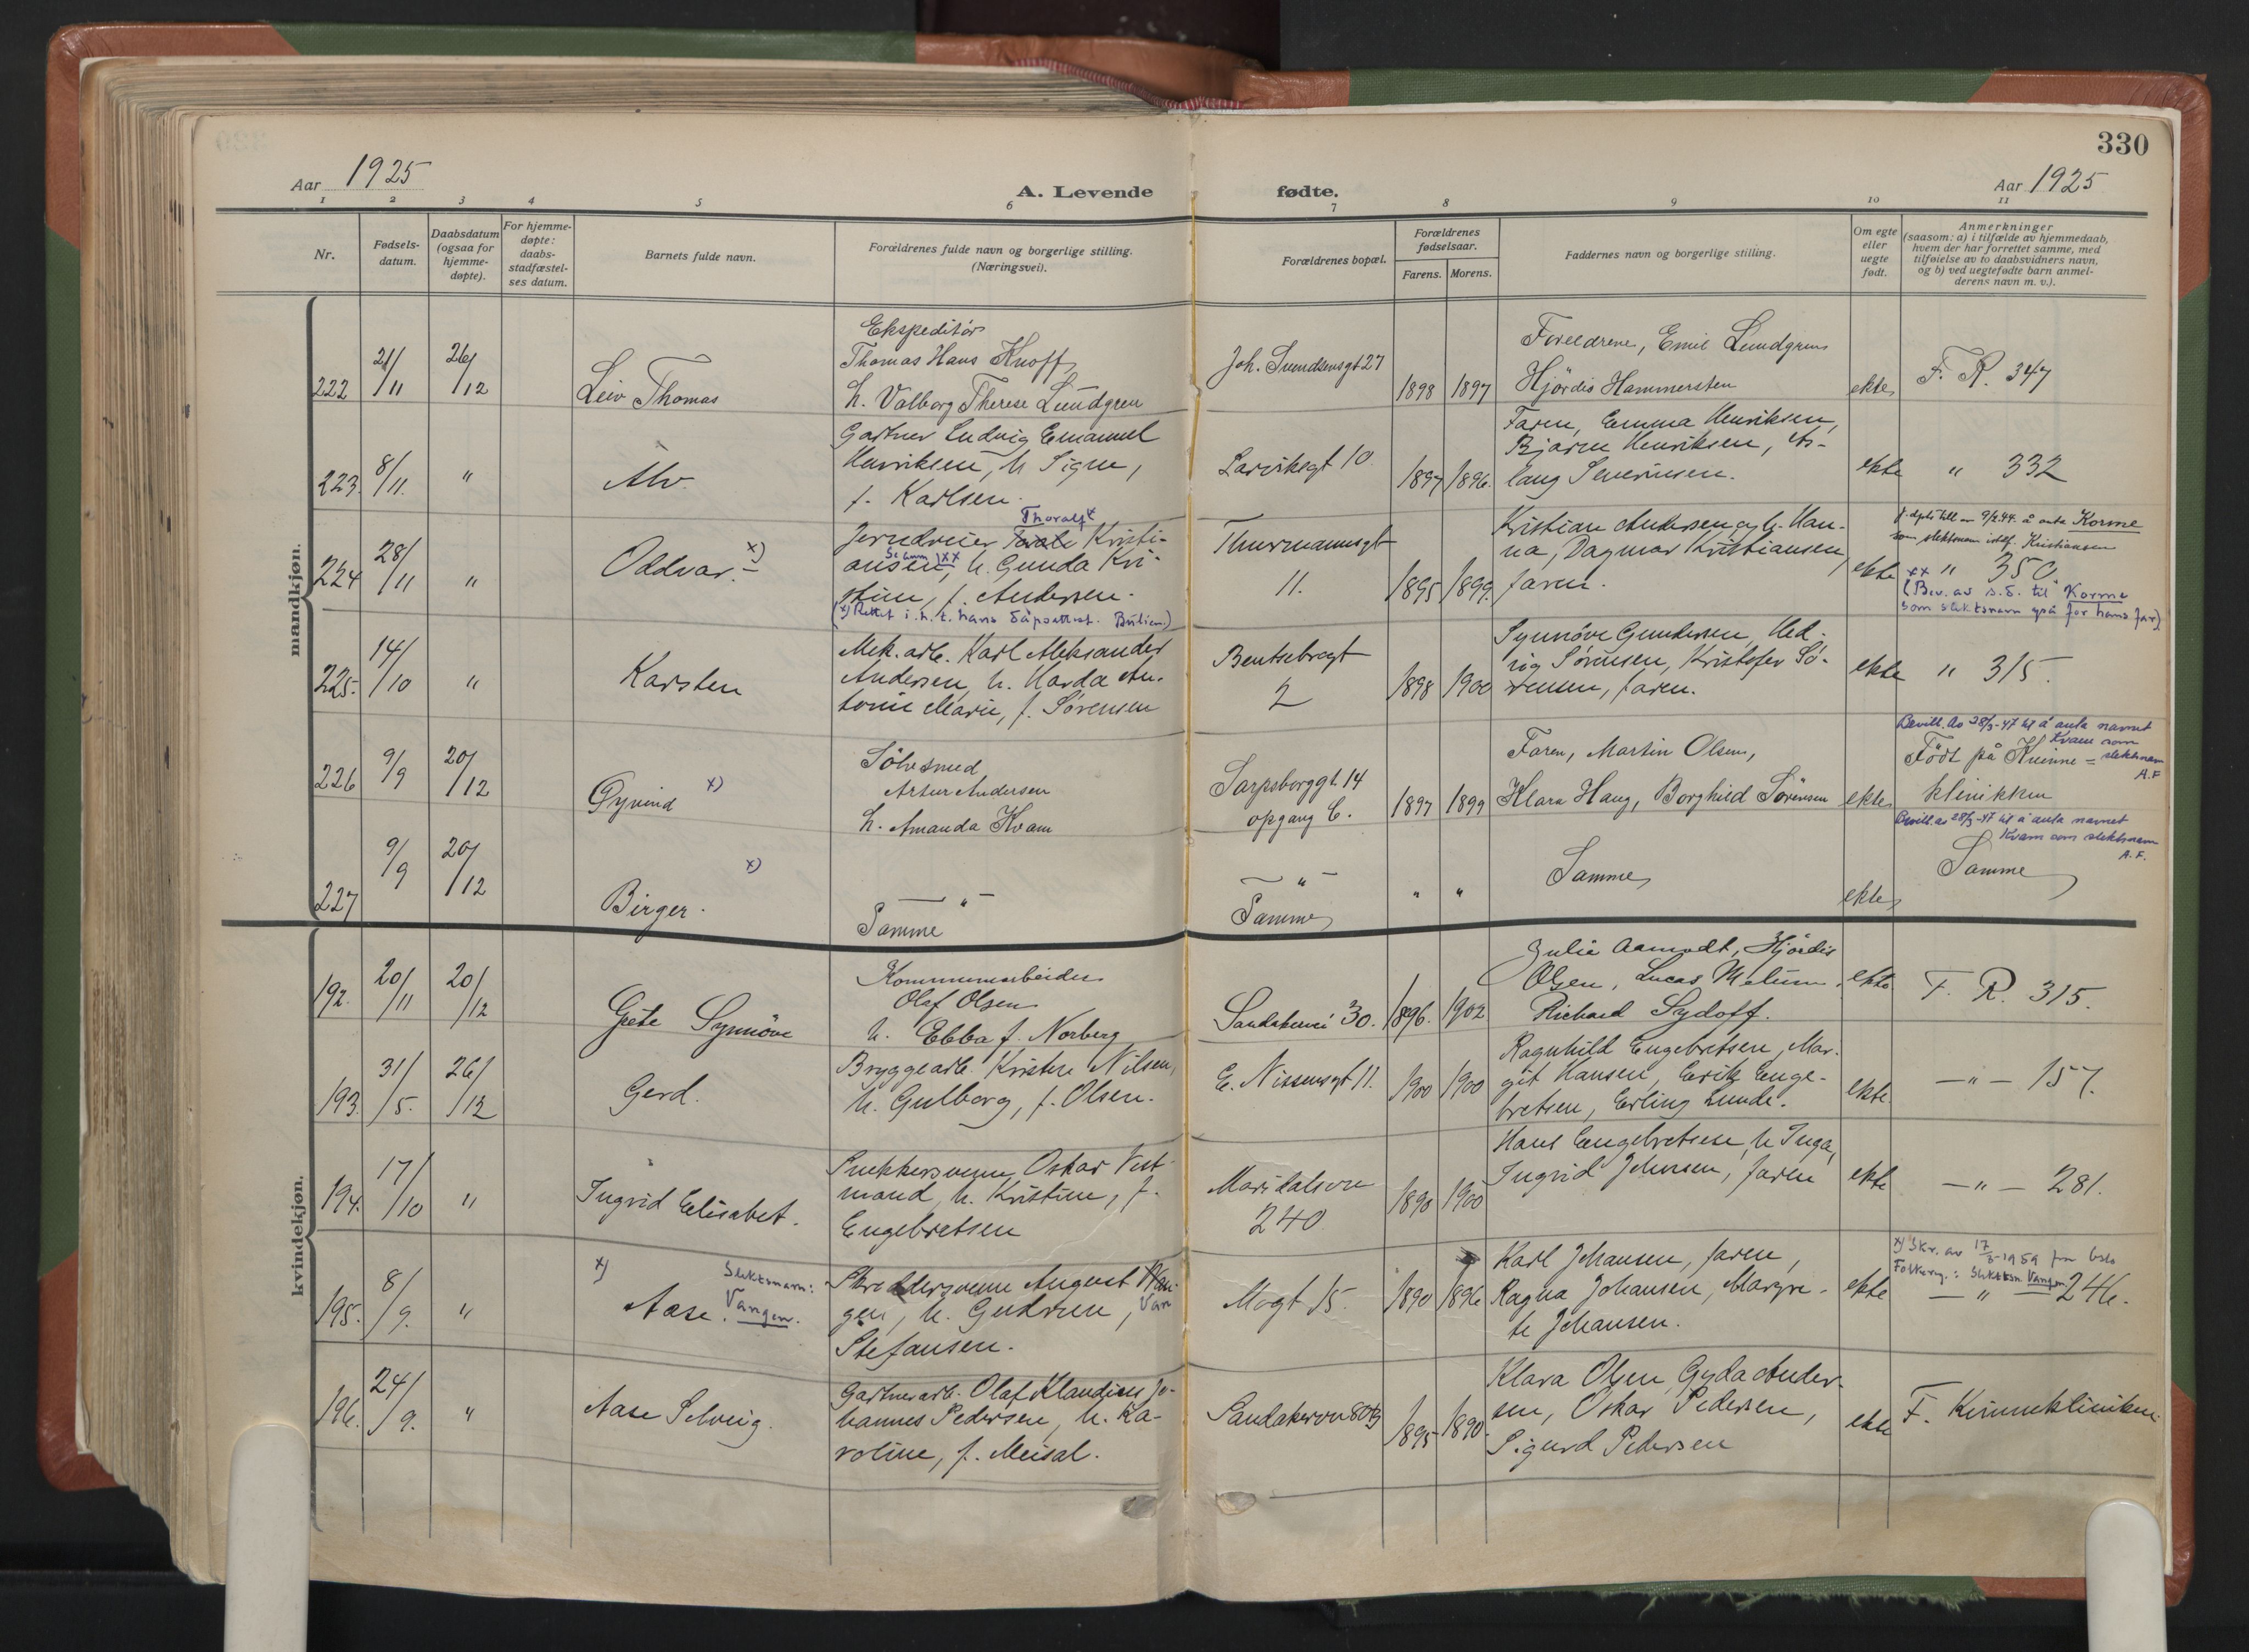 330
Aar 1925
A. Levende fødte.
Aar 1925
1 2 3 4 5 6 7 8 9 10 11
Nr.
Fødsels-
datum.
Daabsdatum
(ogsaa for
hjemme-
døpte).
For hjemme-
døpte:
daabs-
stadfæstel-
ses datum.
Barnets fulde navn.
Forældrenes fulde navn og borgerlige stilling.
(Næringsvei).
Forældrenes bopæl.
Forældrenes
fødselsaar.
Farens. Morens.
Faddernes navn og borgerlige stilling.
Om egte
eller
uegte
født.
Anmerkninger
(saasom: a) i tilfælde av hjemmedaab,
hvem der har forrettet samme, med
tilføielse av to daabsvidners navn,
og b) ved uegtefødte barn anmel-
derens navn m. v.).
mandkjøn.
222 21/11 26/12
Leiv Thomas
Ekspeditör
Thomas Hans Knoff
h. Valborg Therese Lundgren
Joh. Svendsensgt 27
1898 1897
Foreldrene, Emil Lundgren
Hjördis Hammersten
ekte
F. R. 347
223. 8/11. "
Alv.
Gartner Ludvig Emanuel
Henriksen, h. Signe,
f. Karlsen.
Larviksgt 10.
1897 1896.
Faren, Emma Henriksen,
Bjarne Henriksen, As-
laug Severinsen.
ekte
" 332
224 28/11 "
Oddvar. x)
Thoralf
Jerndreier Kristi-
ansen, xx h. Gunda Kri-
stine, f. Andersen.
(x) Rettet i.h.t. hans dåpsattest.
Thurmannsgt
11.
1895 1899.
Kristian Andersen og h. Han-
na, Dagmar Kristiansen,
faren.
ekte
9/2.44. å anta Korme
som slektsnavn istf. Kristiansen
xx " 350
(Bev. av s.d. til Korme
som slektsnavn også for hans far)
225. 14/10 "
Karsten
Mek. arb. Karl Aleksander
Andersen, h. Harda An-
tonie Marie, f. Sørensen
Bentsebrogt
2
1898 1900
Synnöve Gundersen, Hed-
vig Sörensen, Kristofer Sö-
rensen, faren.
ekte
" 315.
226 9/9 20/12
Øyvind x)
Sölvsmed
Artur Andersen
h. Amanda Kvam
Sarpsborggt. 14
opgang C.
1897 1899
Faren, Martin Olsen,
Klara Haug, Borghild Sörensen
ekte
Bevill. av 28/3-47 til å anta navnet
Kvam som
slektsnavn
A.F
Född på Kvinne =
klinikken
227 9/9 20/12
Birger. x)
— " —
Samme
— " —
Samme
" "
Samme
ekte
Bevill. av 28/3-47 til å anta navnet
Kvam som slektsnavn
A.F.
Samme
kvindekjøn.
192. 20/11 20/12
Grete Synnöve
Kommunearbeider
Olaf Olsen
h. Ebba f. Norberg
Sandakervei 30.
1896. 1902
Julie Aamodt, Hjördis
Olsen, Lucas Melum,
Richard Sydoff.
ekte
F. R. 315.
193. 31/5. 26/12
Gerd.
Bryggearb. Kristen Nilsen,
h. Gulborg, f. Olsen.
E. Nissensgt 11.
1900 1900
Ragnhild Engebretsen, Mar-
git Hansen, Erik Enge-
bretsen, Erling Lunde.
ekte
— " — 157.
194. 17/10 "
Ingrid Elisabet.
Snekkersvenn Oskar Vest-
mand, h. Kristine, f.
Engebretsen
Maridalsvn
240
1890 1900
Hans Engebretsen, h Inga,
Ingrid Johnsen, faren
ekte
— " — 281.
195. 8/9. "
x)
Slektsnavn:
Aase. Vangen.
Skreddersvenn August Wan-
gen, h. Gudrun, Van
Stefansen.
Mogt 15.
1890 1896
Karl Johansen, faren,
Ragna Johansen, Margre-
te Johansen.
ekte
x) Skr. av 17/3-1959 fra Oslo
Folkereg.: Slektsn. Vangen
— " — 246.
196. 24/9. "
Aase Solveig.
Gartnerarb. Olaf Klaudius Jo-
hannes Pedersen, h. Ka-
roline, f. Meisal.
Sandakervn 80
1895 1890
Klara Olsen, Gyda Ander-
sen, Oskar Pedersen,
Sigurd Pedersen
ekte
F. Kvinneklinikken.